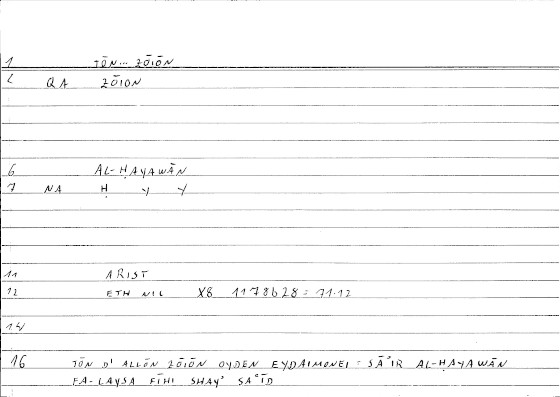 1 TŌN... ZŌIŌN
2 QA ZŌION
6 AL-ḤAYAWĀN
7 NA Ḥ Y Y
11 ARIST
12 ETH NIC X8 1178b28 = 71.12
14
16 TŌN D' ALLŌN ZŌIŌN OYDEN EYDAIMONEI = SĀ'IR AL-ḤAYAWĀN
FA-LAYSA FĪHI SHAY' SAʿĪD